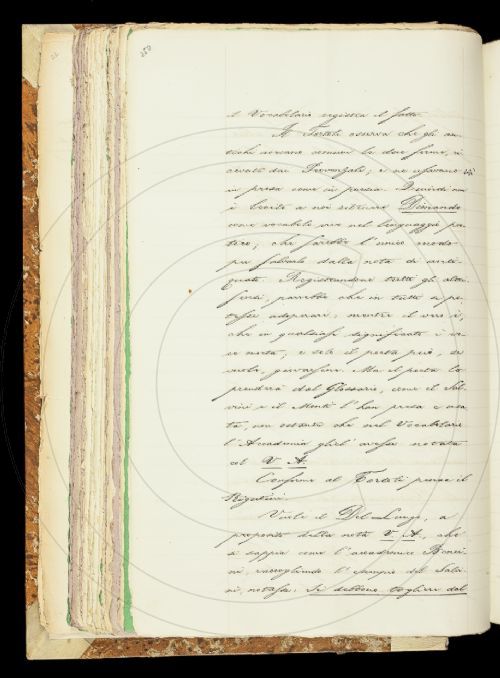 250
il Vocabolario registra il fatto.
Il Tortoli osserva che gli an-
tichi ebbero comuni le due forme, ri-
cevute dai Provenzali; e ne usavano sì
in prosa come in poesia. Quindi non
è lecito a noi ritenere Dimando
come vocabolo vivo nel linguaggio poe-
tico; che sarebbe l'unico modo
per salvarlo dalla nota di anti-
quato. Registrandone tutti gli altri
sensi, parrebbe che in tutti si po-
tesse adoperare; mentre il vero è,
che in qualsiasi significato è vo-
ce morta; e solo il poeta può, se
vuole, giovarsene. Ma il poeta lo
prenderà dal Glossario, come il Sal-
vini e il Monti l'han presa e usa-
ta, non ostante che nel Vocabolario
l'Accademia gliel'avesse notata
col V. A.
Conforme al Tortoli pensa il
Rigutini.
Vuole il Del Lungo, a
proposito della nota V. A., che
si sappia come l'accademico Bencini
raccogliendo l'esempio del Salvi-
ni, notasse: Si debbono togliere dal